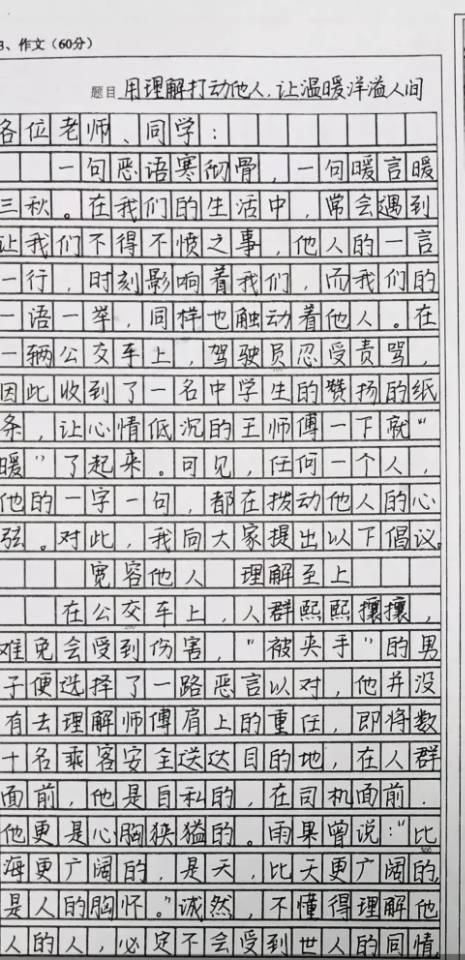 3、作文（60分）
题目 用理解打动他人，让温暖洋溢人间
各位老师、同学：
一句恶语寒彻骨，一句暖言暖
三秋。在我们的生活中，常会遇到
让我们不得不愤之事，他人的一言
一行，时刻影响着我们，而我们的
一语一举，同样也触动着他人。在
一辆公交车上，驾驶员忍受责骂，
因此收到了一名中学生的赞扬的纸
条，让心情低沉的王师傅一下就“
暖”了起来。可见，任何一个人，
他的一字一句，都在拨动他人的心
弦。对此，我向大家提出以下倡议。
宽容他人 理解至上
在公交车上，人群熙熙攘攘，
难免会受到伤害，“被夹手”的男
子便选择了一路恶言以对，他并没
有去理解师傅肩上的重任，即将数
十名乘客安全送达目的地，在人群
面前，他是自私的，在司机面前．
他更是心胸狭猛的。雨果曾说：“比
海更广阔的，是天，比天更广阔的，
是人的胸怀。”诚然，不懂得理解他
人的人，必定不会受到世人的同情，